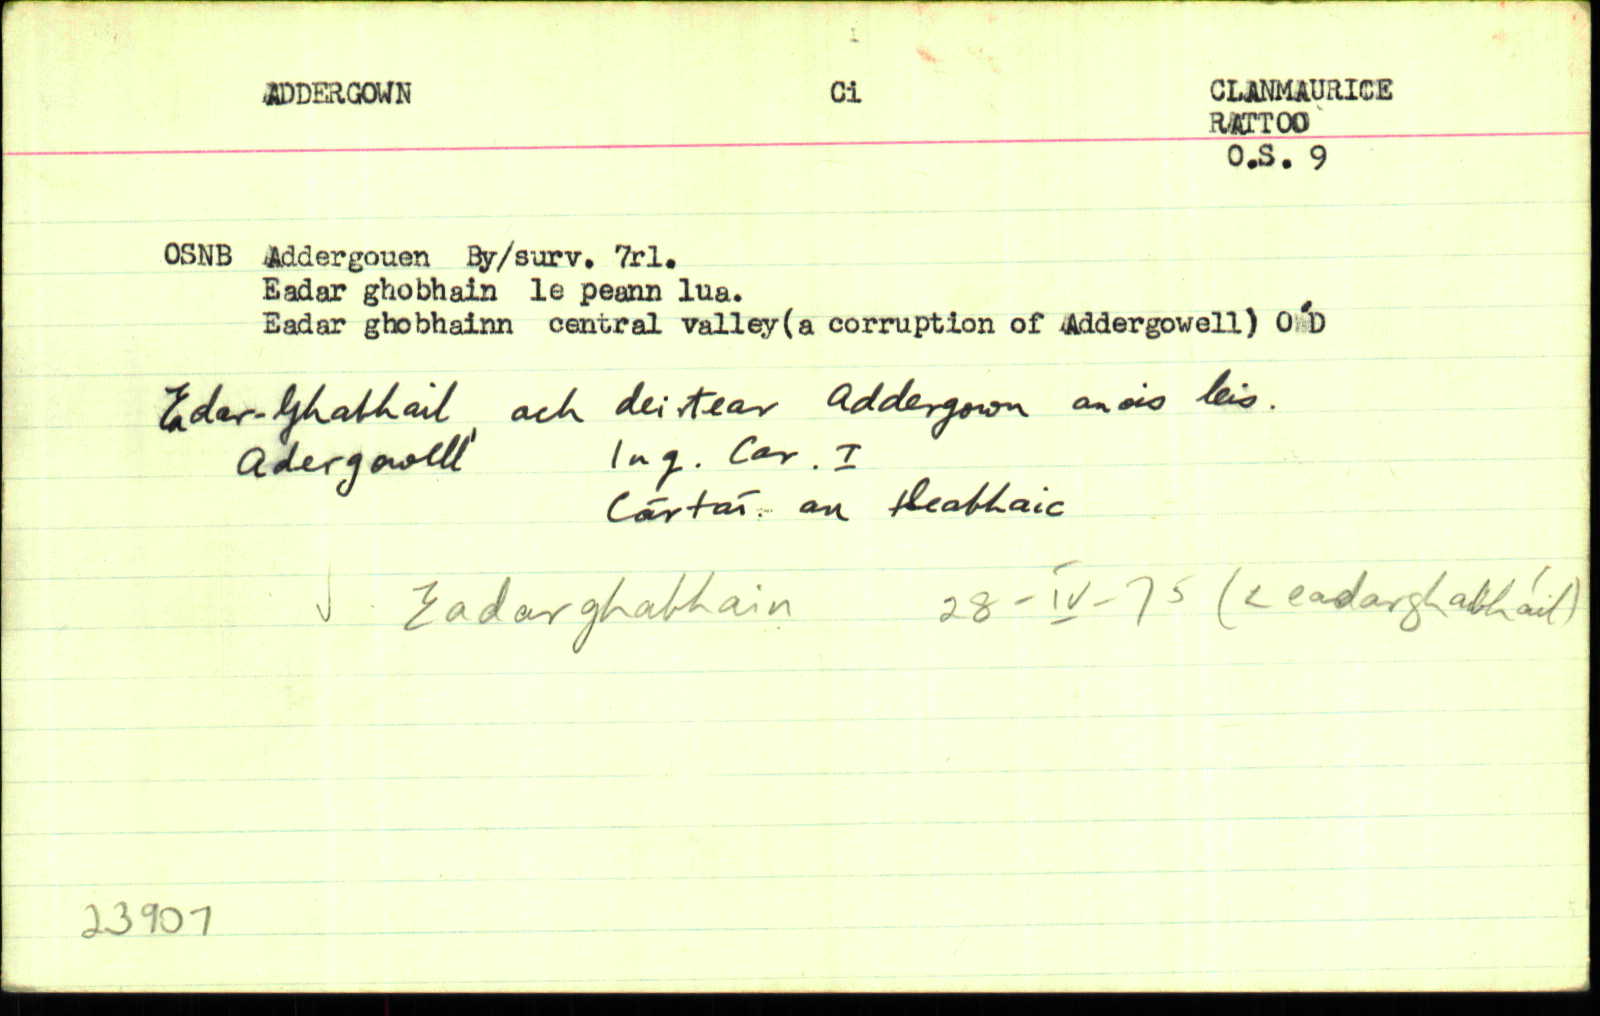 ADDERGOWN Ci CLANMAURICE
RATTOO
O.S. 9
OSNB Addergouen By/surv. 7rl.
Eadar ghobhain le peann lua.
Eadar ghobhainn central valley(a corruption of Addergowell) O'D
Eadar-Ghabhail, ach deirtear Addergown anois leis.
Adergowll Ing. Car. I
Cártaí an tSeabhaic
Eadarghabhain 28-IV-75 (< eadarghabháil)
23907